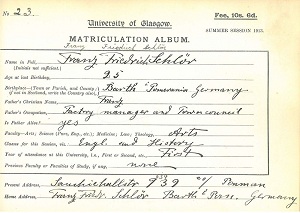 No. 23.
Fee, 10s. 6d.
University of Glasgow.
SUMMER SESSION
MATRICULATION ALBUM.
Franz Friedrich Schlör
Name in Full, Franz Friedrich Schlör
(Initials not sufficient).
Age at last Birthday, 25
Birthplace—(Town or Parish, and County;) Barth Pomerania Germany
Father's Christian Name, Franz
Father's Occupation, Factory manager and Town council
Is Father Alive? yes
Faculty—Arts, Science (Pure, Eng., etc.), Medicine, Law, Theology, Arts
Classes for this Session, viz.: Engl. and History
Year of attendance at this University, i.e., First or Second, etc., First
Previous Faculty or Faculties of Study, if any, none
Present Address, Sauchiehallstr 939 c/o Penman
Home Address, Franz Friedr. Schlör Barth Germany